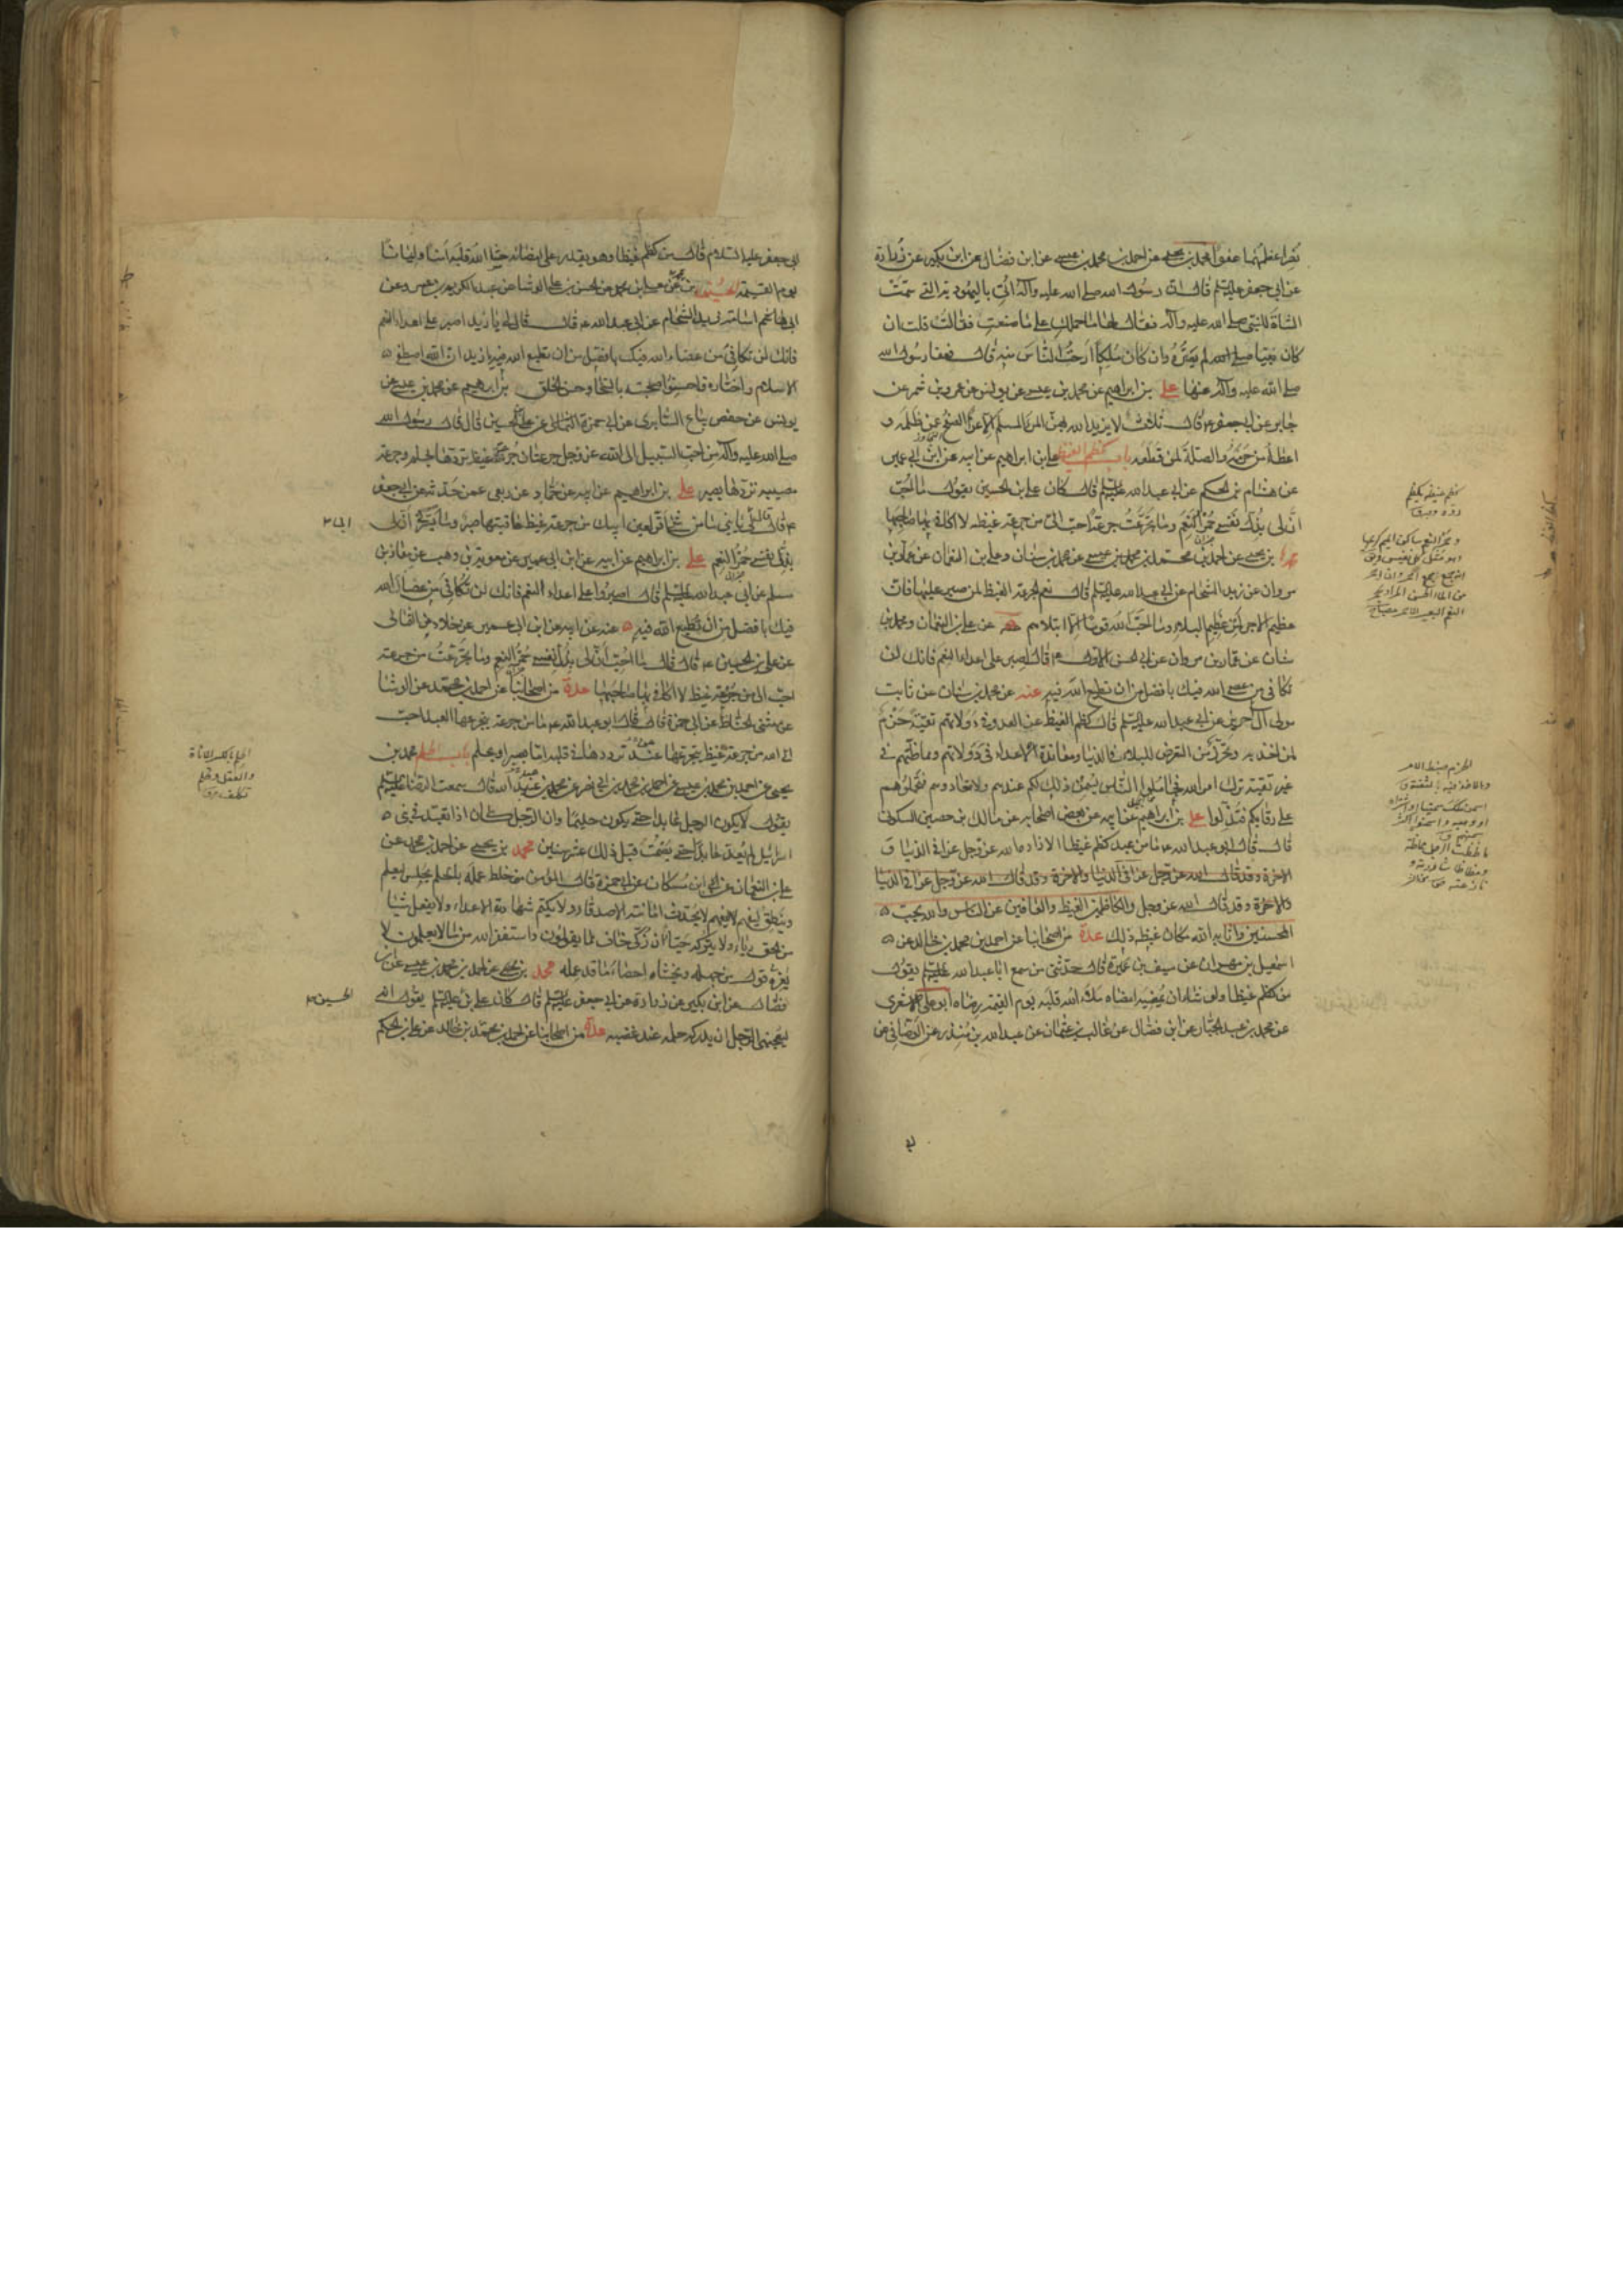 نصر اعظمهما عفوا محمد بن يحيى عن احمد بن محمد بن عيسى عن ابن فضال عن ابن بكير عن زرارة
عن ابي جعفر عليه السلم قال ان رسول الله صلى الله عليه وآله اتي باليهودية التي سمت
الشاة للنبي صلى الله عليه وآله فقال لها ما حملك على ما صنعت فقالت قلت ان
كان نبيا لم يضره وان كان ملكا ارحت الناس منه قال فعفا رسول الله
صلى الله عليه وآله عنها علي بن ابراهيم عن محمد بن عيسى عن يونس عن عمرو بن شمر عن
جابر عن ابي جعفر ع قال ثلاث لا يزيد الله بهن المرء المسلم الا عزا الصفح عمن ظلمه و
اعطاء من حرمه والصلة لمن قطعه باب كظم الغيظ علي بن ابراهيم عن ابيه عن ابن ابي عمير
عن هشام بن الحكم عن ابي عبد الله عليه السلم قال كان علي بن الحسين يقول ما احب
ان لي بذل نفسي حمر النعم وما تجرعت جرعة احب الي من جرعة غيظ لا اكافي بها صاحبها
محمد بن يحيى عن احمد بن محمد بن عيسى عن محمد بن سنان وعلي بن النعمان عن عمار بن
مروان عن زيد الشحام عن ابي عبد الله عليه السلم قال نعم الجرعة الغيظ لمن صبر عليها فان
عظيم الاجر لمن عظيم البلاء وما احب الله قوما الا ابتلاهم عنه عن علي بن النعمان ومحمد بن
سنان عن عمار بن مروان عن ابي الحسن الاول ع قال اصبر على اعداء النعم فانك لن
تكافي من عصى الله فيك بافضل من ان تطيع الله فيه عنه عن محمد بن سنان عن ثابت
مولى آل حريز عن ابي عبد الله عليه السلم قال كظم الغيظ عن العدو في دولاتهم تقية حزم
لمن اخذ به وتحرز من التعرض للبلاء في الدنيا ومعاندة الاعداء في دولاتهم ومماظتهم في
غير تقية ترك امر الله فجاملوا الناس يسمن ذلك لكم عندهم ولا تعادوهم فتحملوهم
على رقابكم فتذلوا علي بن ابراهيم عن ابيه عن بعض اصحابه عن مالك بن حصين السكوني
قال قال ابو عبد الله ع ما من عبد كظم غيظا الا زاده الله عز وجل عزا في الدنيا و
الاخرة وقد قال الله عز وجل عزا في الدنيا والاخرة وقد قال الله عز وجل عزا في الدنيا
والاخرة وقد قال الله عز وجل والكاظمين الغيظ والعافين عن الناس والله يحب
المحسنين واثابه الله مكان غيظه ذلك عدة من اصحابنا عن احمد بن محمد بن خالد عن
اسمعيل بن مهران عن سيف بن عميرة قال حدثني من سمع ابا عبد الله عليه السلم يقول
من كظم غيظا ولو شاء ان يمضيه امضاه ملاء الله قلبه يوم القيمة رضاه ابو علي الاشعري
عن محمد بن عبد الجبار عن ابن فضال عن غالب بن عثمان عن عبد الله بن منذر عن الوصافي عن
كظم غيظه يكظم
رده وحبسه ق
الحزم ضبط الامر
والاخذ فيه بالثقة ق
ابي جعفر عليه السلام قال من كظم غيظا وهو يقدر على امضائه حشا الله قلبه امنا وايمانا
يوم القيمة الحسين بن محمد عن معلى بن محمد عن الحسن بن علي الوشا عن عبد الكريم بن عمرو عن
ابي اسامة زيد الشحام عن ابي عبد الله ع قال قال لي يا زيد اصبر على اعداء النعم
فانك لن تكافي من عصى الله فيك بافضل من ان تطيع الله فيه يا زيد ان الله اصطفى
الاسلام واختاره فاحسنوا صحبته بالسخاء وحسن الخلق بن ابراهيم عن محمد بن عيسى عن
يونس عن حفص بياع السابري عن ابي حمزة الثمالي عن علي بن الحسين قال قال رسول الله
صلى الله عليه وآله من احب السبيل الى الله عز وجل جرعتان جرعة غيظ تردها بحلم وجرعة
مصيبة تردها بصبر علي بن ابراهيم عن ابيه عن حماد عن ربعي عمن حدثه عن ابي جعفر
ع قال قال لي يا بني ما من شيء اقر لعين ابيك من جرعة غيظ عاقبتها صبر وما يسرني ان لي
بذل نفسي حمر النعم علي بن ابراهيم عن ابيه عن ابن ابي عمير عن معوية بن وهب عن معاذ بن
مسلم عن ابي عبد الله عليه السلم قال اصبروا على اعداء النعم فانك لن تكافي من عصى الله
فيك بافضل من ان تطيع الله فيه عنه عن ابيه عن ابن ابي عمير عن خلاد عن الثمالي
عن علي بن الحسين ع قال قال ما احب ان لي بذل نفسي حمر النعم وما تجرعت من جرعة
احب الي من جرعة غيظ لا اكافي بها صاحبها عدة من اصحابنا عن احمد بن محمد عن الوشا
عن مثنى الحناط عن ابي حمزة قال قال ابو عبد الله ع ما من جرعة يتجرعها العبد احب
الى الله من جرعة غيظ يتجرعها عند ترددها في قلبه اما بصبر او بحلم باب الحلم محمد بن
يحيى عن احمد بن محمد بن عيسى عن احمد بن محمد بن ابي نصر عن محمد بن عبيد الله قال سمعت الرضا عليه السلم
يقول لا يكون الرجل عابدا حتى يكون حليما وان الرجل كان اذا تعبد في بني
اسرائيل لم يعد عابدا حتى يصمت قبل ذلك عشر سنين محمد بن يحيى عن احمد بن محمد عن
علي بن النعمان عن ابن مسكان عن ابي حمزة قال المؤمن خلط عمله بالحلم يجلس ليعلم
وينطق ليفهم لا يحدث امانته الاصدقاء ولا يكتم شهادة الاعداء ولا يفعل شيئا
من الحق رياء ولا يتركه حياء ان زكي خاف ما يقولون واستغفر الله مما لا يعلمون لا
يغره قول من جهله ويخشى احصاء ما قد عمله محمد بن يحيى عن احمد بن محمد بن عيسى عن ابن
فضال عن ابن بكير عن زرارة عن ابي جعفر عليه السلم قال كان علي بن عليه السلم يقول انه
ليعجبني الرجل ان يدركه حلمه عند غضبه عدة من اصحابنا عن احمد بن محمد بن خالد عن علي بن الحكم
الحلم بالكسر الاناة
والعقل
الحسين